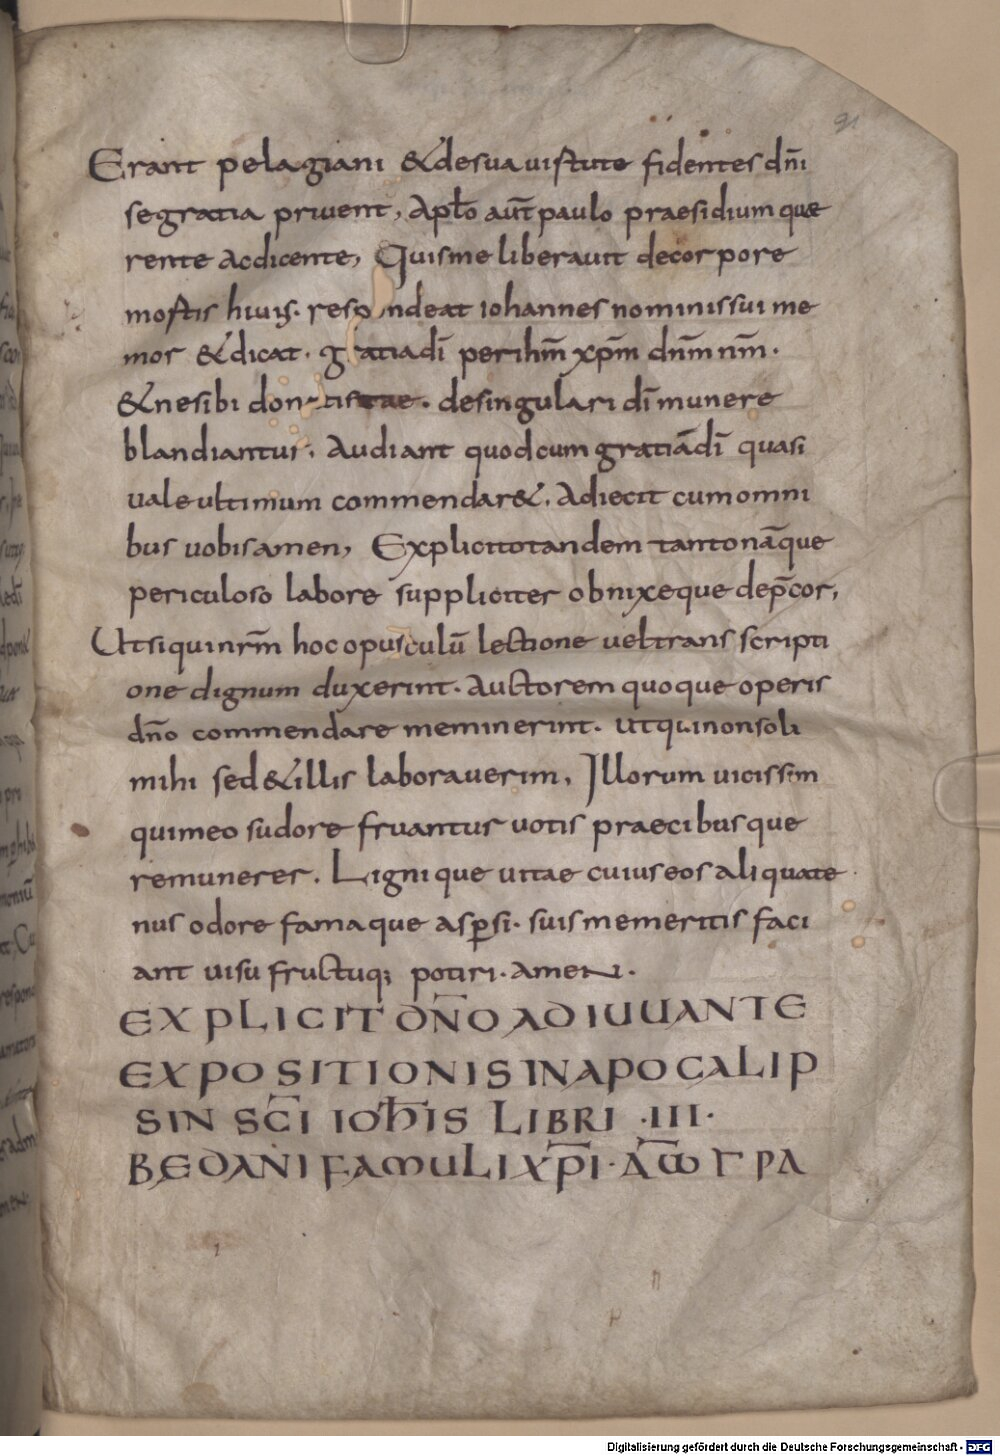 91
Erant pelagiani &desuauirtute fidentes dn̄i
segratia priuent, Aplo aut̄ paulo praesidium quae
rente acdicente, Quisme liberauit decorpore
mortis huius. respondeat iohannes nominissui me
mor &dicat. gratiadī perihm̄ xpm̄ dnm̄ nm̄.
&nesibi donatistae. desingulari dī munere
blandiantur. Audiant quodcum gratiādī quasi
uale ultimum commendar&. Adiecit cumomni
bus uobisamen, Explicitotandem tantonāque
periculoso labore suppliciter obnixeque dep̄cor,
Utsiquinrm̄ hoc opusculū lectione ueltrans scripti
one dignum duxerint. Auctorem quoque operis
dn̄o commendare meminerint. utquinonsoli
mihi sed &illis laborauerim, Illorum uicissim
quimeo sudore fruantur uotis praecibusque
remunerer. Lignique uitae cuiuseos aliquate
nus odore famaque asp̱si. suismemeritis faci
ant uisu fructuq; potiri. amen.
EXPLICIT DN̄O ADIUUANTE
EXPOSITIONIS INAPOCALIP
SIN SC̄I IOH̄IS LIBRI ·III·
BEDANI FAMULI XP̄I· Ā ω̄ Γ ΡΑ
Digitalisierung gefördert durch die Deutsche Forschungsgemeinschaft - DFG